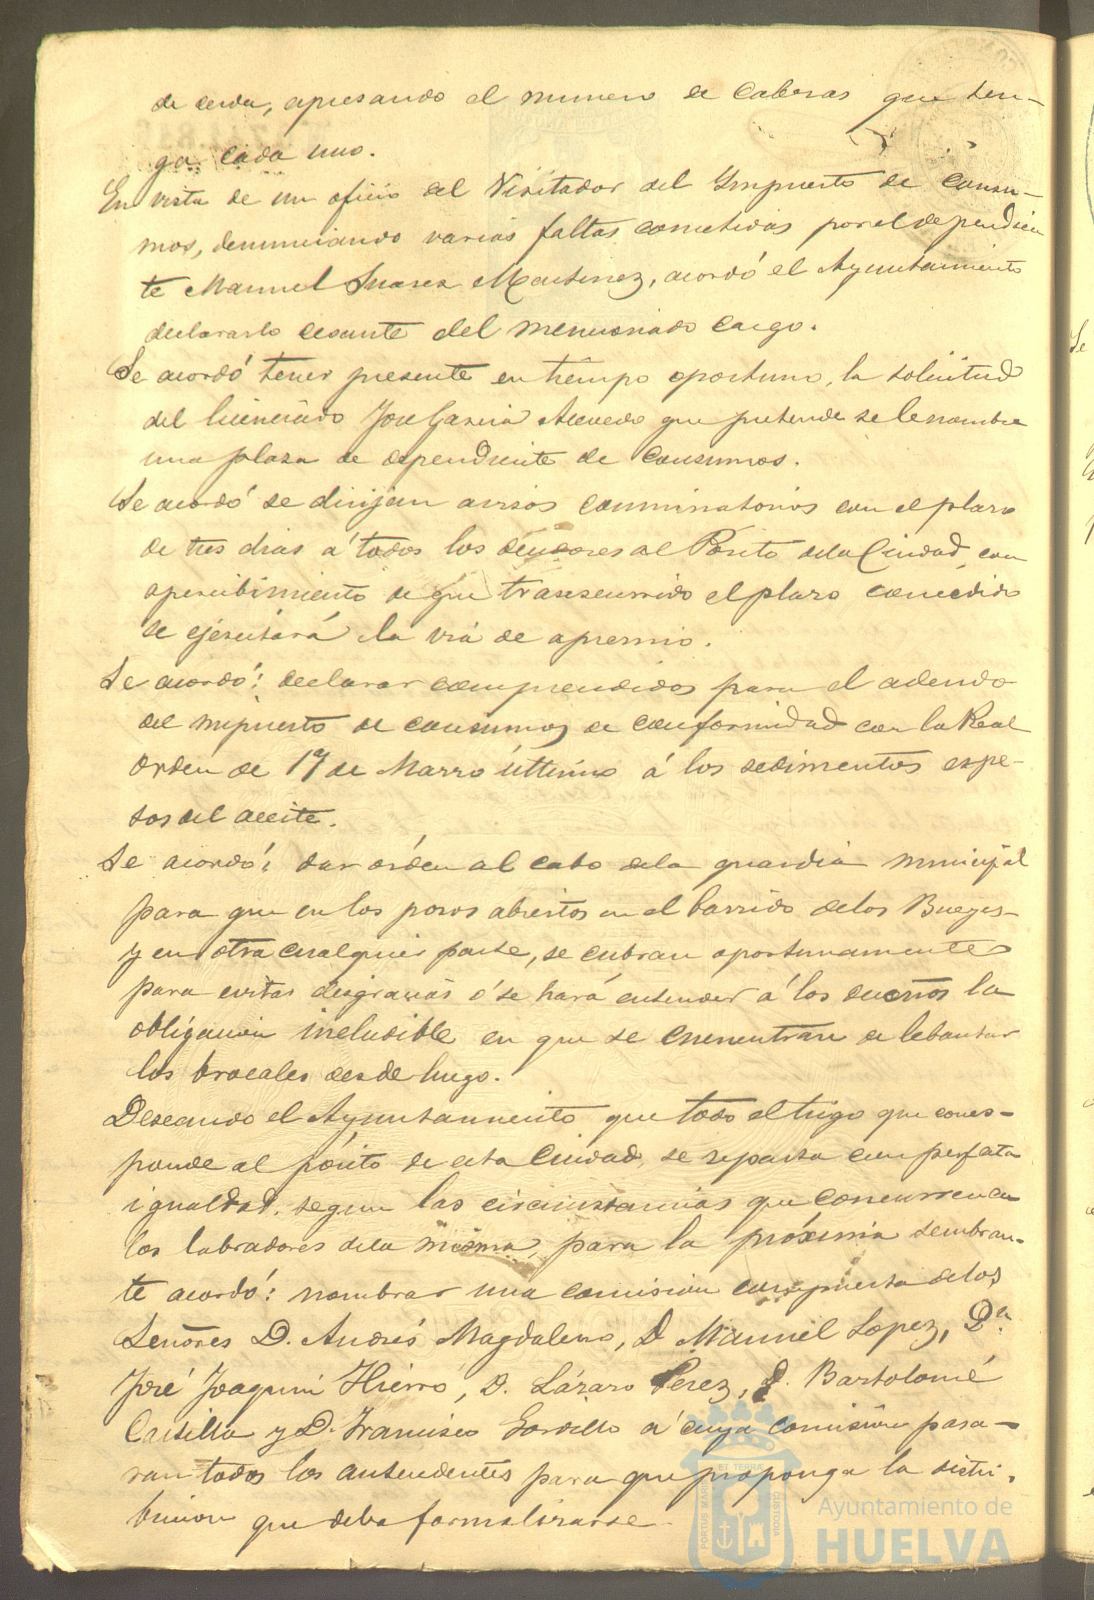 de cerda, apresando el numero de cabezas que ten-
ga cada uno.
En vista de un oficio del Visitador del Impuesto de Consu-
mos, denunciando varias faltas cometidas por el dependien
te Manuel Suarez Martinez, acordó el Ayuntamiento
declararlo cesante del mencionado cargo.
Se acordó tener presente en tiempo oportuno, la solicitud
del licenciado Jose Garcia Acevedo que pretende se le nombre
una plaza de dependiente de Consumos.
Se acordó se dirijan avisos conminatorios con el plazo
de tres dias á todos los deudores al Posito de la Ciudad, con
apercibimiento de que trasescurrido el plazo concedido
se ejecutará la via de apremio.
Se acordó: declarar comprendidos para el adeudo
del impuesto de consumos de conformidad con la Real
orden de 17 de Marzo último á los sedimentos espe-
sos del aceite.
Se acordó: dar órden al cabo de la guardia municipal
para que en los pozos abiertos en el barrido de los
y en otra cualquier parte, se cubran oportunamente
para evitar desgracias ó se hará entender á los dueños la
obligacion ineludible en que se encuentran de lebantar
los brocales desde luego.
Deseando el Ayuntamiento que todo el trigo que corres-
ponde al pósito de esta Ciudad, se reparta con perfecta
igualdad, segun las circunstancias que concurren en
los labradores de la misma, para la próxima sembran-
te acordó: nombrar una comision compuesta de los
Señores D. Andrés Magdaleno, D Manuel Lopez, Dn
José Joaquin Hierro, D. Lázaro Perez, D. Bartolomé
Castilla y D. Francisco Gordillo á cuya comision pasa-
ran todos los antecedentes para que proponga la distri-
bucion que deba formalizarse.
PORTUS MARIS ET TERRAE CUSTODIA
Ayuntamiento de
HUELVA